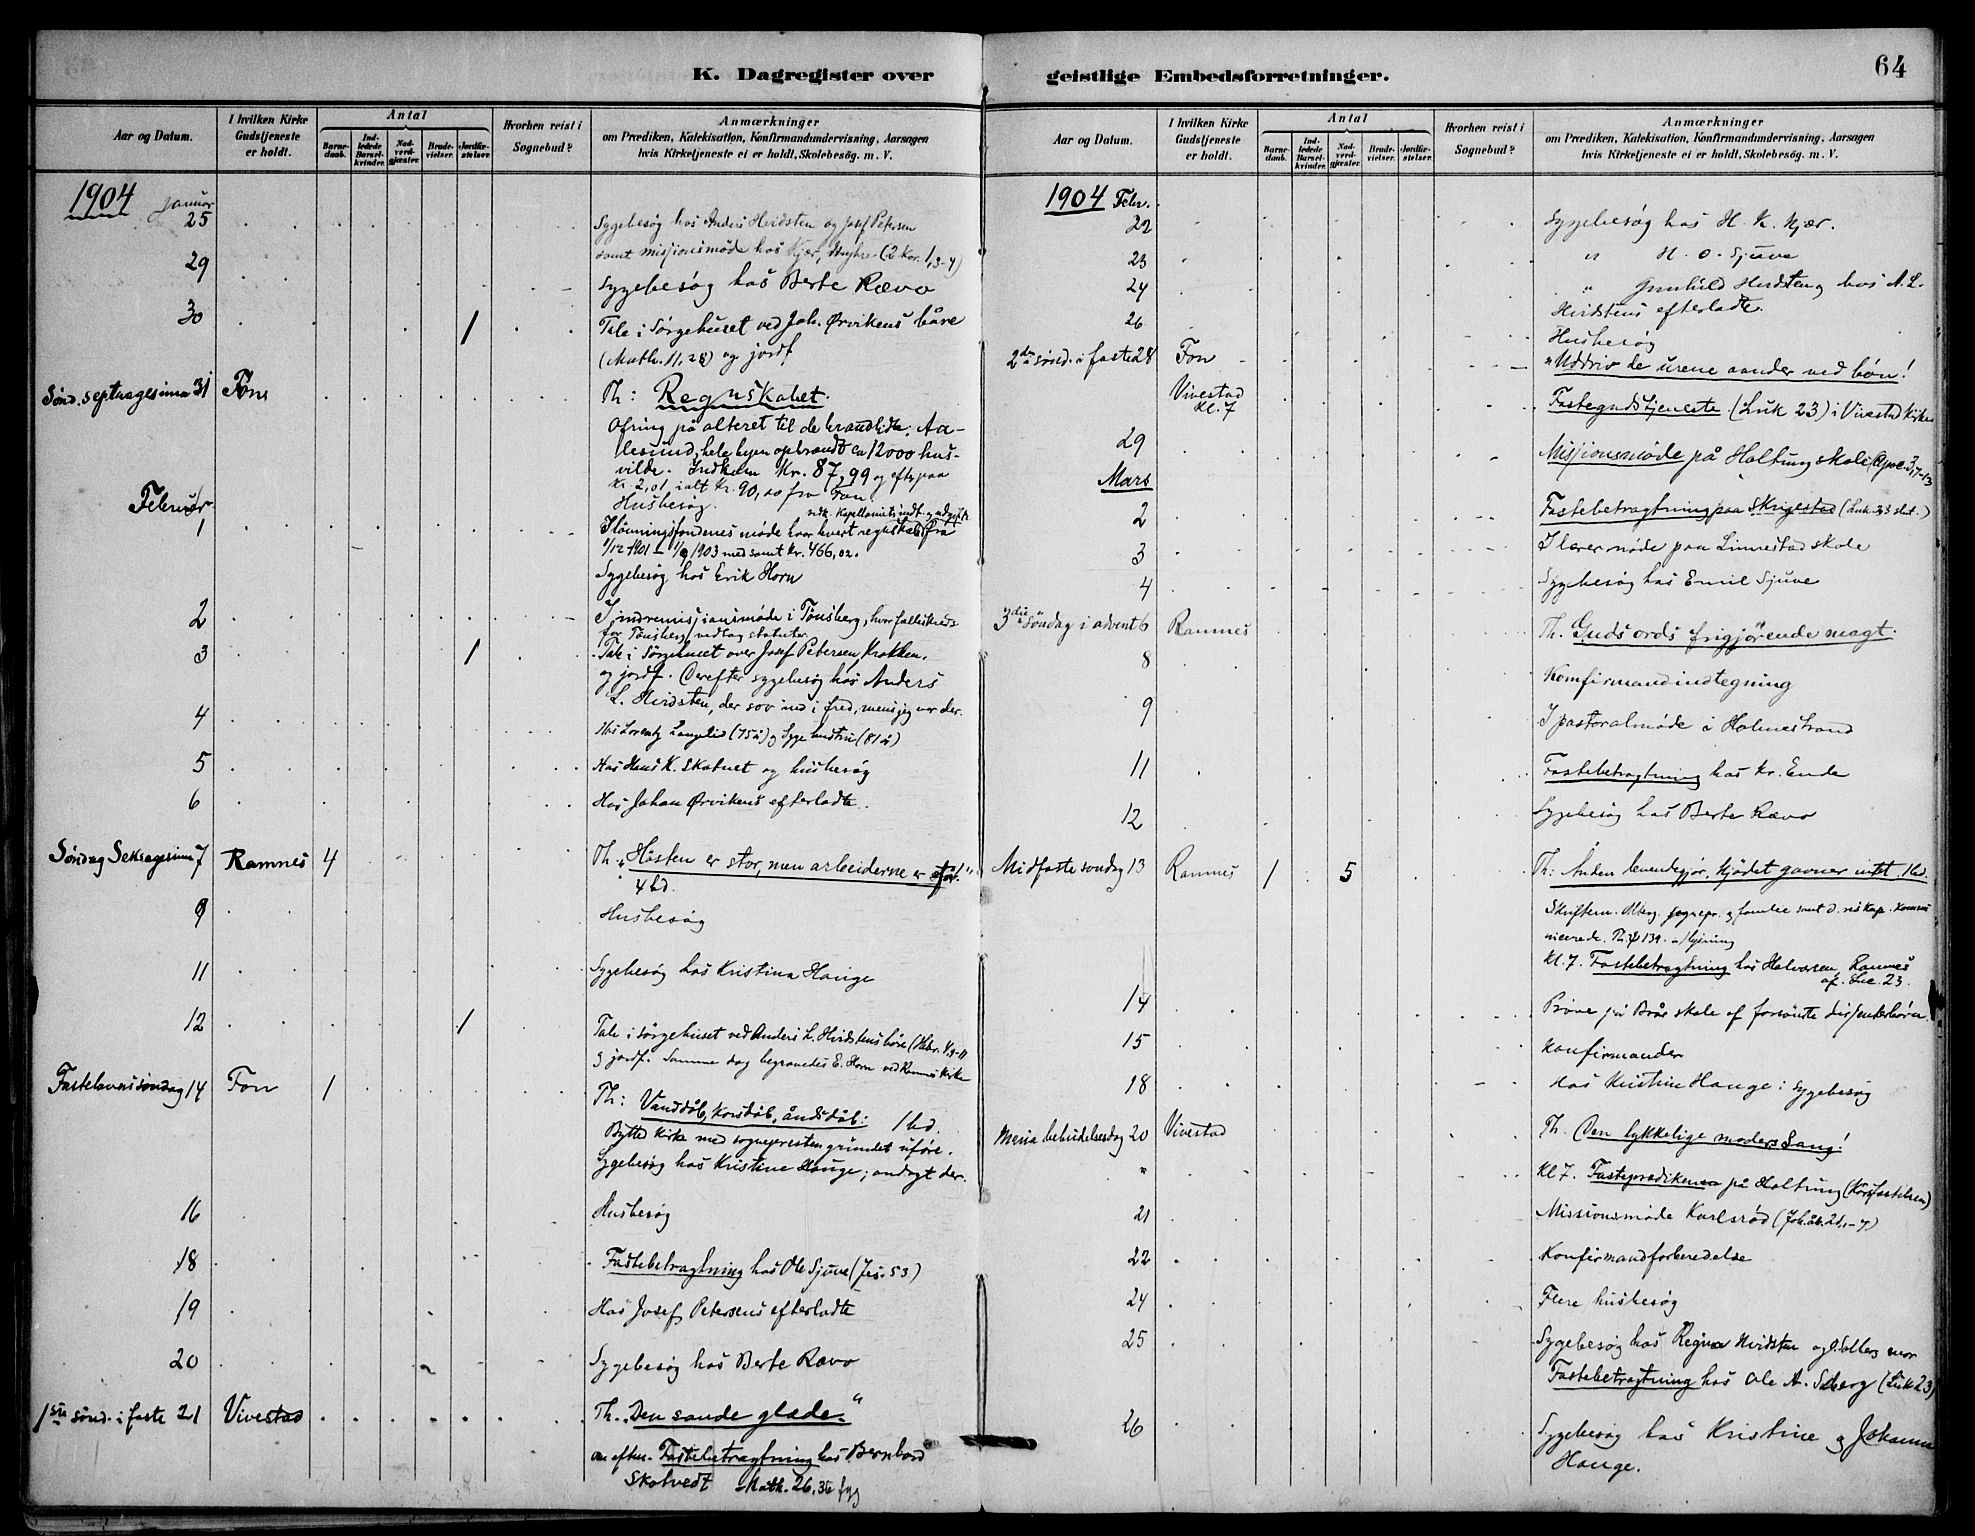 K. Dagregister over
Aar og Datum.
I hvilken Kirke Gudstjeneste er holdt.
Antal
Barnedaab.
Indledede Barselkvinder.
Nadverdgjæster.
Brudevielser.
Jordfæstelser.
Hvorhen reist i Sognebud?
Anmærkninger
om Prædiken, Katekisation, Konfirmandundervisning, Aarsagen
hvis Kirketjeneste ei er holdt, Skolebesøg. m. V.
1904 Januar
25 Sygebesøg hos Anders Hvidsten og Josef Petersen
samt missionsmøde hos Kjær, (2 Kor. 1,3-4)
29 Sygebesøg hos Berte Rævo
30 / Tale i Sørgehuset ved Joh. Ørvikens båre
(Math. 11,28) og jordf
Sønd. septuagesima 31 Fon Th: Regnskabet.
Ofring på alteret til de brandlidte, Aa-
lesund, hele byen opbrandt ca 12000 hus-
vilde. Indkom Kr. 87,99 og
Kr. 2,01 ialt Kr. 90,00 fra Fon.
Husbesøg.
Februar
1 I lønningsfondenes møde
1/12 1901 - 1903 med samt kr. 466,02.
Sygebesøg hos Erik Horn
2 I indremissionsmøde i Tønsberg, hvor
for Tønsberg vedtog statuter
3 / Tale i Sørgehuset over Josef Petersen, Krakken.
og jordf. Derefter sygebesøg hos Anders
L. Hvidsten, der sov ind i fred, mens jeg var der.
4 Hos Lorentz Langelid (75 år) og syge hustru (81 år)
5 Hos Hans K. Skatuet og husbesøg
6 Hos Johan Ørvikens efterladte.
Søndag Seksagesima 7 Ramnes 4 Th. "Høsten er stor, men arbeiderne er
4 bd.
9 Husbesøg
11 Sygebesøg hos Kristina Hauge
12 / Tale i sørgehuset ved Anders L. Hvidstens båre (Hebr. 4,9-11
og jordf. Samme dag begravedes E. Horn ved Ramnes Kirke
Fastelavnssøndag 14 Fon 1 Th: Vanddåb, Korsdåb, åndsdåb: 1 bd.
Byttet Kirke med sognepresten grundet uføre.
Sygebesøg hos Kristine Hauge; andagt der.
16 Husbesøg
18 Fastebetragtning hos Ole Sjuve (Jes. 53)
19 Hos Josef Petersens efterladte
20 Sygebesøg hos Berte Rævo
1ste sønd. i faste 21 Vivestad Th. "Den sande glæde"
om eften. Fastebetragtning hos Bernhard
Skotvedt Math. 26,36 fyg
geistlige Embedsforretninger.
64
Aar og Datum.
I hvilken Kirke Gudstjeneste er holdt.
Antal
Barnedaab.
Indledede Barselkvinder.
Nadverdgjæster.
Brudevielser.
Jordfæstelser.
Hvorhen reist i Sognebud?
Anmærkninger
om Prædiken, Katekisation, Konfirmandundervisning, Aarsagen
hvis Kirketjeneste ei er holdt, Skolebesøg. m. V.
1904 Febr.
22 Sygebesøg hos H. K. Kjær.
23 " H. O. Sjuve
24 " Gunhild Hvidsten og hos A. L.
Hvidstens efterladte.
26 Husbesøg
2den sønd. i faste 28 Fon "Uddriv de urene aander ved bøn!
Vivestad Kl. 7 Fastegudstjeneste (Luk 23) i Vivestad Kirke
29 Missionsmøde på Holtung skole (Apoc. 3,7-13
Mars
2 Fastebetragtning paa Skrigestad (Luk. 23 slut.)
3 I lærermøde paa Linnestad skole
4 Sygebesøg hos Emil Sjuve
3die Søndag i advent 6 Ramnes Th. Guds ords frigjørende magt.
8 Konfirmandindtegning
9 I pastoralmøde i Holmestrand
11 Fastebetragtning hos Kr. Enda
12 Sygebesøg hos Berte Rævo
Midfastesøndag 13 Ramnes 1 5 Th: Ånden levendegjør, kjødet gavner intet. 1 bd.
Skriftem. sognepr. og familie samt d. res Kap. Kommu
nicerede. Th. 139.
Kl. 7. Fastebetragtning hos Halvorsen, Ramnes
af. Luc. 23.
14 Prøve på Brår skole af forsømte dissenterbørn.
15 Konfirmander
18 Hos Kristine Hauge i sygebesøg
Maria bebudelsesdag 20 Vivestad Th. Den lykkelige moders Sang!
" Kl 7. Fasteprædiken på Holtung (Korsfæstelsen)
21 Missionsmøde Karlsrød (Joh. åb. 21,1-7)
22 Konfirmandforberedelse
24 Flere husbesøg
25 Sygebesøg hos Regna Hvidsten og Solberg mor
Fastebetragtning hos Ole A. Solberg (Luk 23)
26 Sygebesøg hos Kristine og Johanne
Hauge.